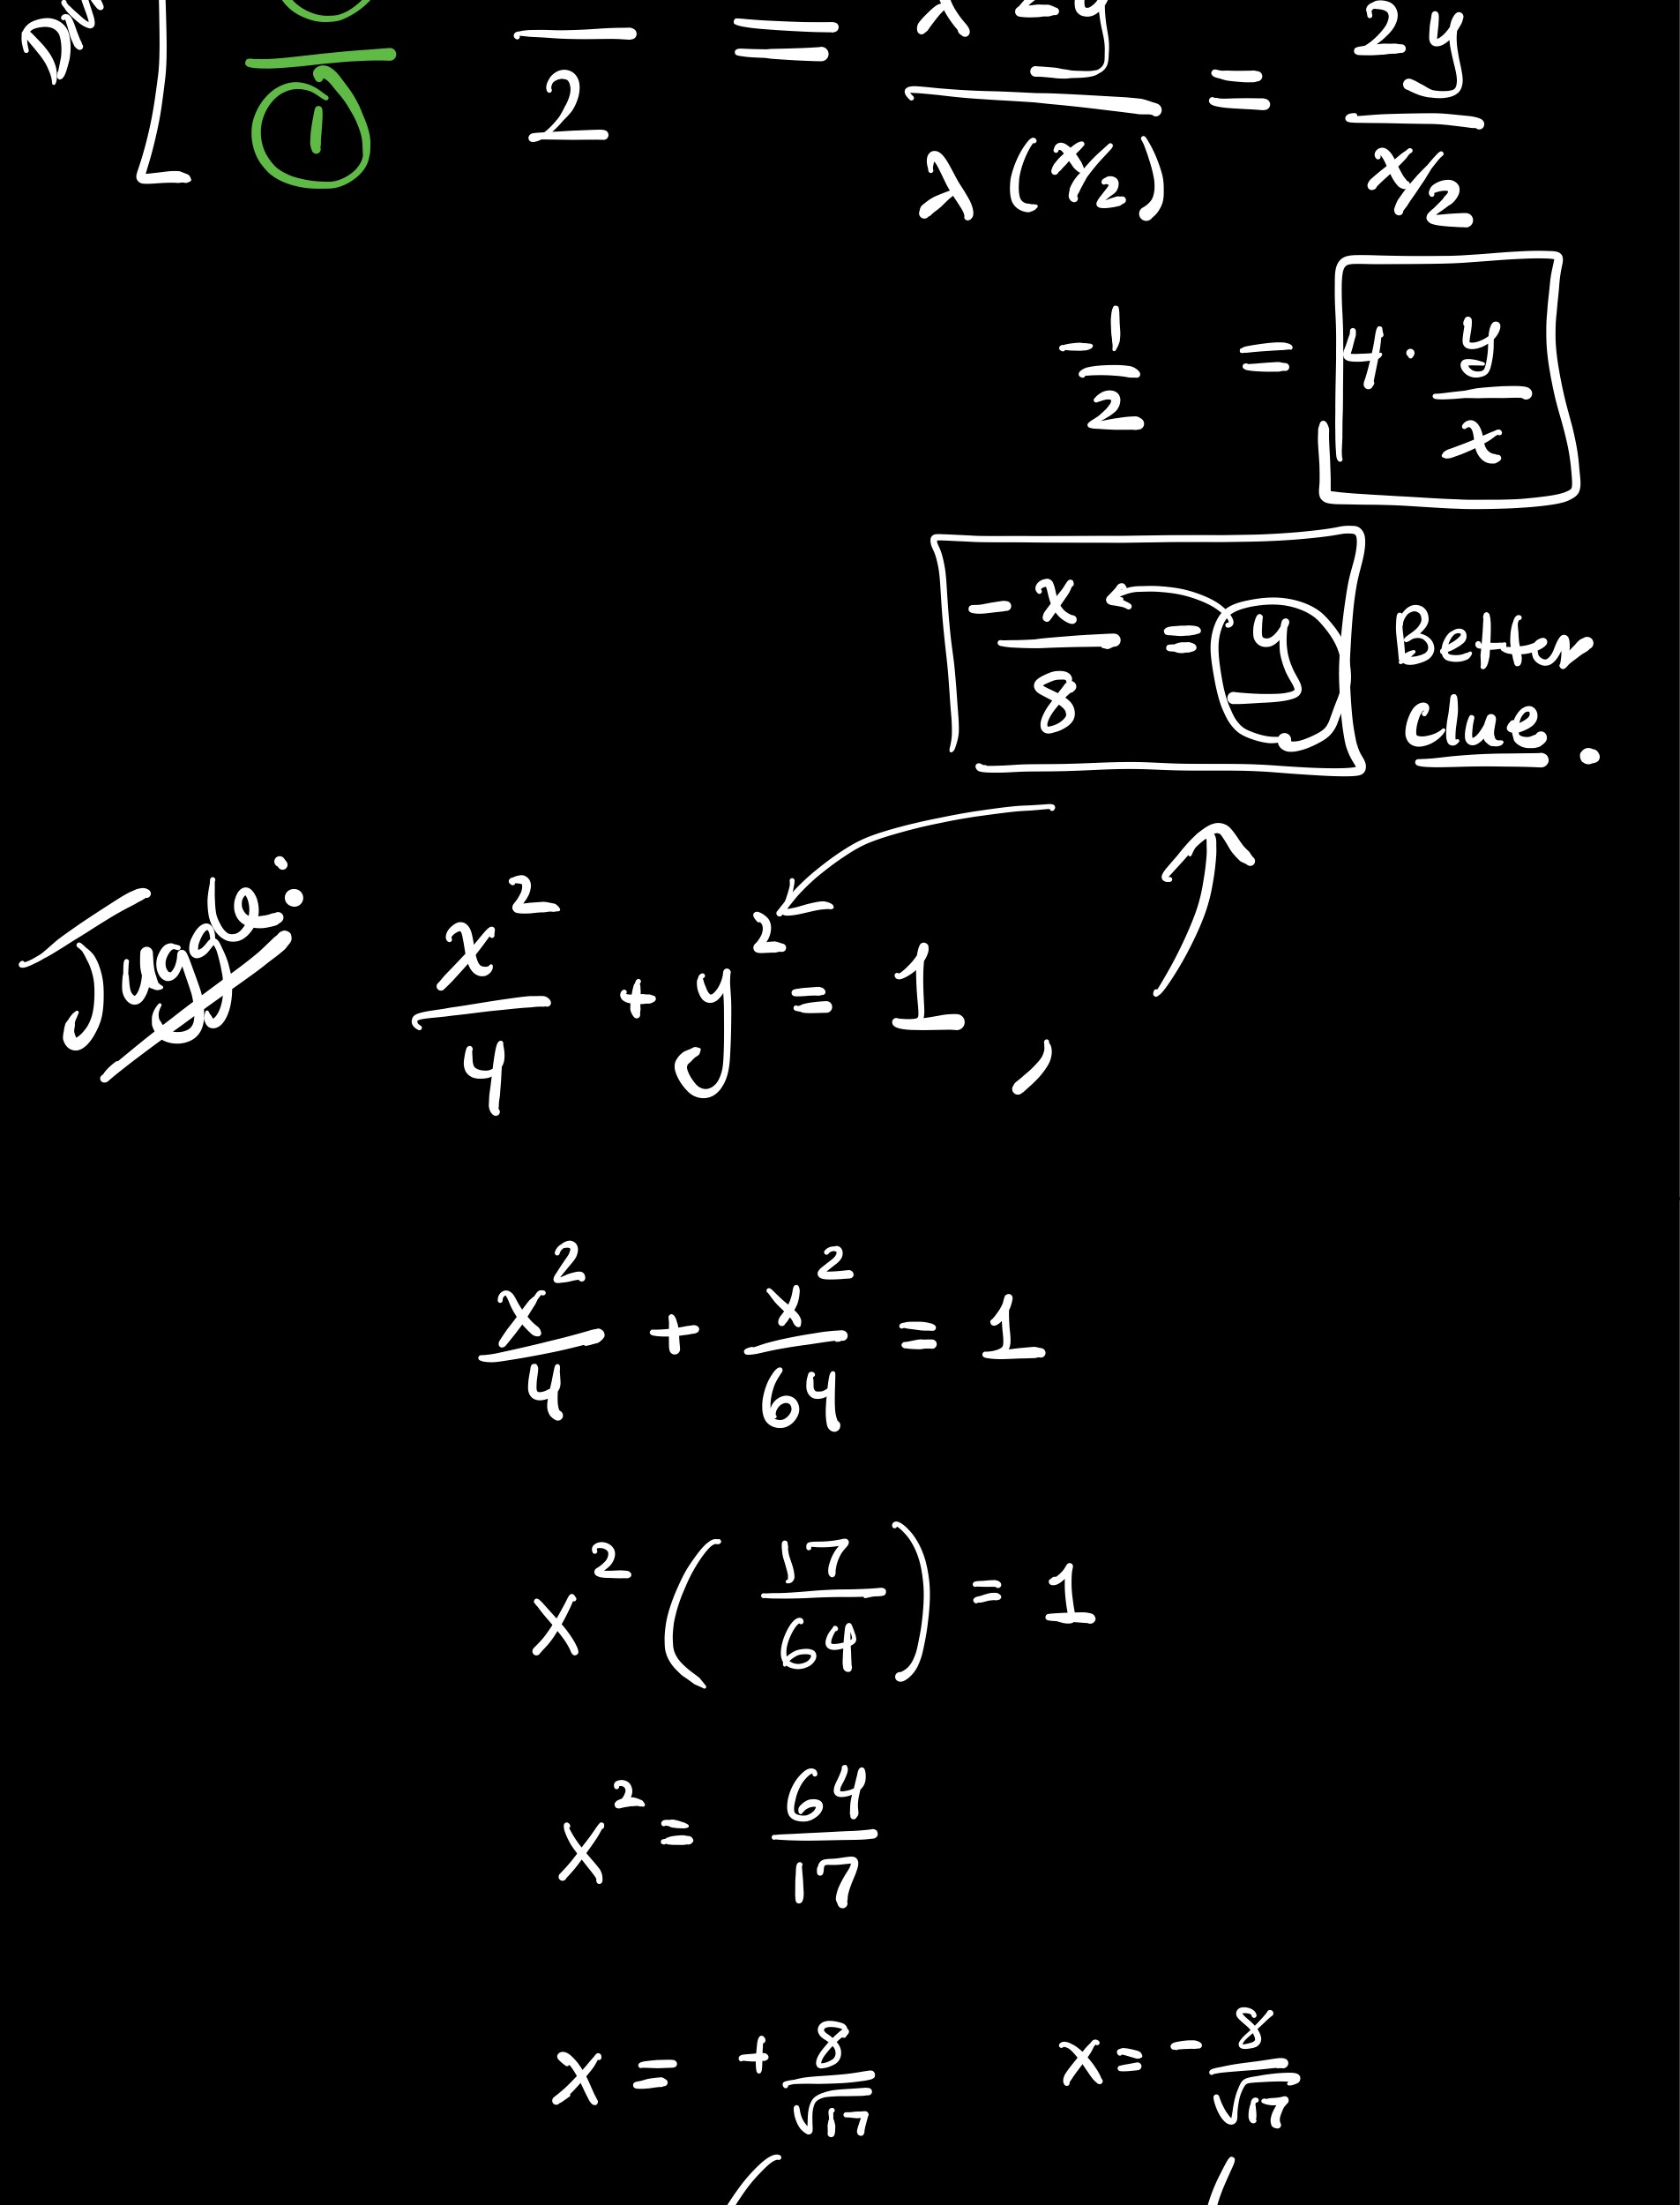 ① / 2 = λ 2y / λ (x/2) = 2y / x/2
- 1/2 = 4 · y/x
- x/8 = y Better
clue.
Judge: x²/4 + y² = 1 ,
x²/4 + x²/64 = 1
x² ( 17/64 ) = 1
x² = 64/17
x = + 8/√17 x = - 8/√17